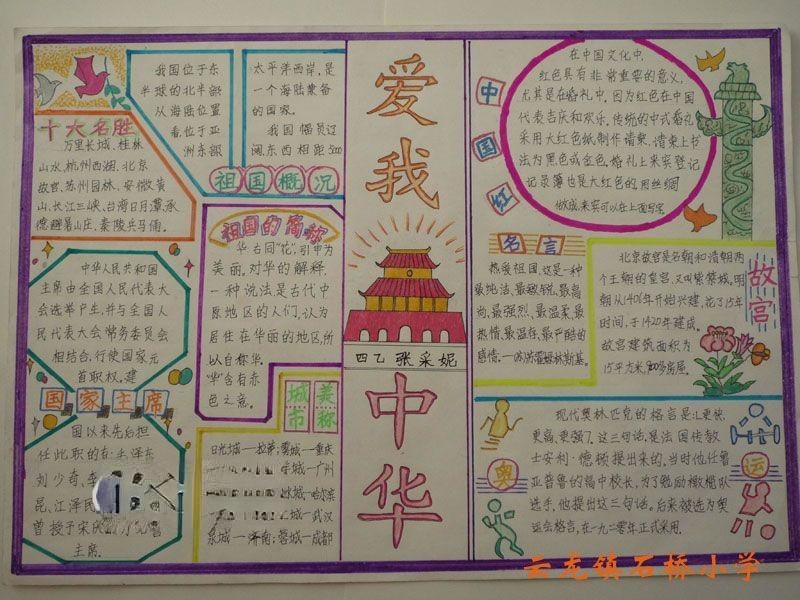 爱我中华
四乙 张采妮
十大名胜
万里长城、桂林
山水、杭州西湖、北京
故宫、苏州园林、安徽黄
山、长江三峡、台湾日月潭、承
德避暑山庄、秦陵兵马俑。
我国位于东
半球的北半部
从海陆位置
看位于亚
洲东部
太平洋西岸,是
一个海陆兼备
的国家。
我国幅员辽
阔东西相距5000
祖国概况
祖国的简称
华古同“花”,引申为
美丽,对华的解释
一种说法是古代中
原地区的人们,认为
居住在华丽的地区,所
以自称华.
“华”含有赤
色之意。
中华人民共和国
主席由全国人民代表大
会选举产生,并与全国人
民代表大会常务委员会
相结合,行使国家元
首职权,建
国家主席
国以来先后担
任此职的有毛泽东
刘少奇、李
昆、江泽民
曾授于宋庆
主席.
城市美称
日光城—拉萨;雾城—重庆
羊城—广州
冰城—哈尔滨
江城—武汉
泉城—济南;蓉城—成都
中国红
在中国文化中.
红色具有非常重要的意义,
尤其是在婚礼中.因为红色在中国
代表吉庆和欢乐.传统的中式婚礼
采用大红色纸制作请柬.请柬上书
法为黑色或金色.婚礼上来宾登记
记录簿也是大红色的用丝绸
做成,来宾可以在上面写字
名言
热爱祖国,这是一种
最纯洁、最敏锐、最高
尚、最强烈、最温柔、最
热情、最温存、最严酷的
感情.
北京故宫是名朝和清朝两
个王朝的皇宫,又叫紫禁城,明
朝从1406年开始兴建,花了15年
时间,于1420年建成.
故宫建筑面积为
15平方米,
故宫
现代奥林匹克的格言是:让更快、
更高、更强了.这三句话,是法国传教
士安利·德顿提出来的,当时他任鲁
亚普鲁的葛中校长,为了勉励橄榄队
选手,他提出这三句话.后来被选为奥
运会格言,在一九二零年正式采用.
奥运
云龙镇石桥小学